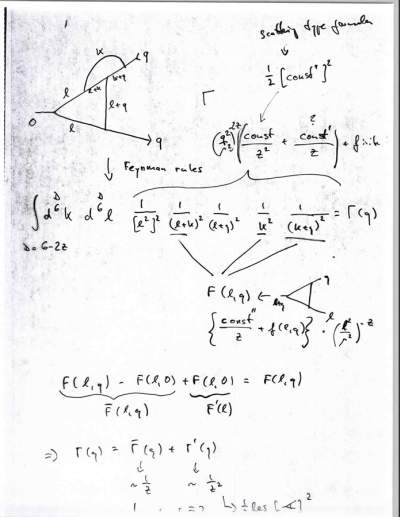 scattering type formula
1/2 [const'']²
k
q
l
l+k
k+q
l+q
0
l
q
Γ
?
(q²/μ²)^{-2z} (const/z² + const'/z) + finite
↓ Feynman rules
∫ d^D k d^D l 1/[l²]² 1/(l+k)² 1/(l+q)² 1/k² 1/(k+q)² = Γ(q)
D = 6-2z
F(l,q) ←
q
l
{const''/z + f(l,q)} · (l²/μ²)^{-z}
F(l,q) - F(l,0) + F(l,0) = F(l,q)
F̄(l,q) F'(l)
⇒ Γ(q) = Γ̄(q) + Γ'(q)
~ 1/z ~ 1/z²
↳ 1/2 [Res ]²